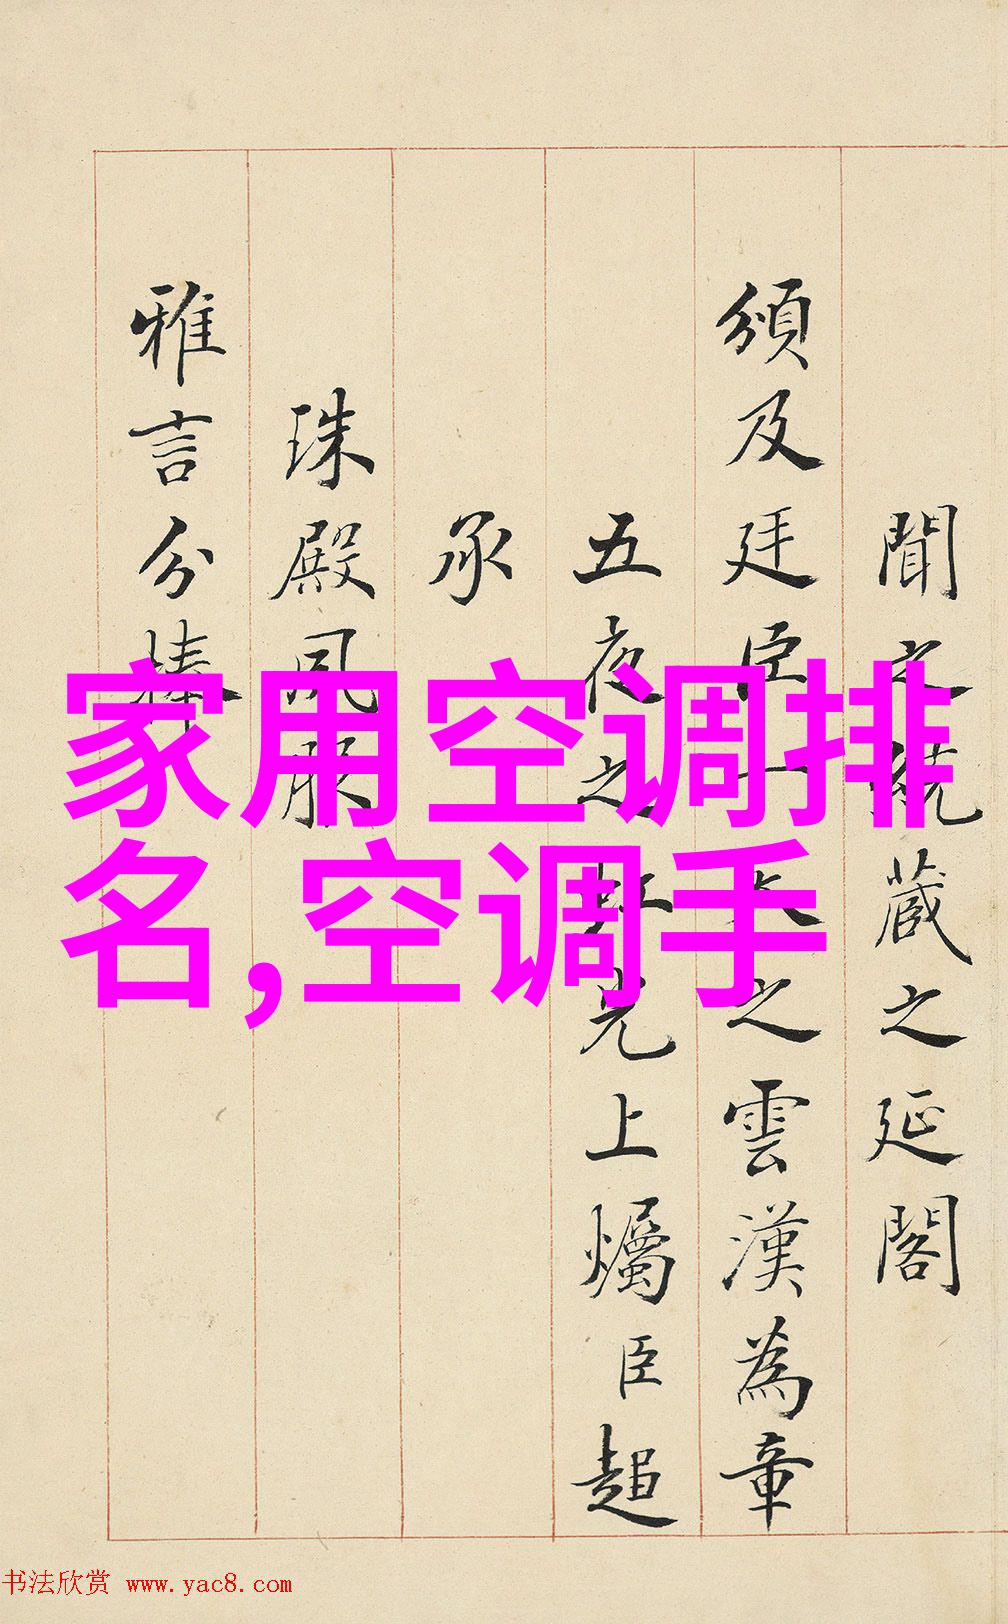 聞之
蔵之延閣
頒及廷臣
之雲漢為章
五夜之
光上爥臣超
承
珠殿風
雅言分捧
家用空调排
名,空调手
书法欣赏 www.yac8.com